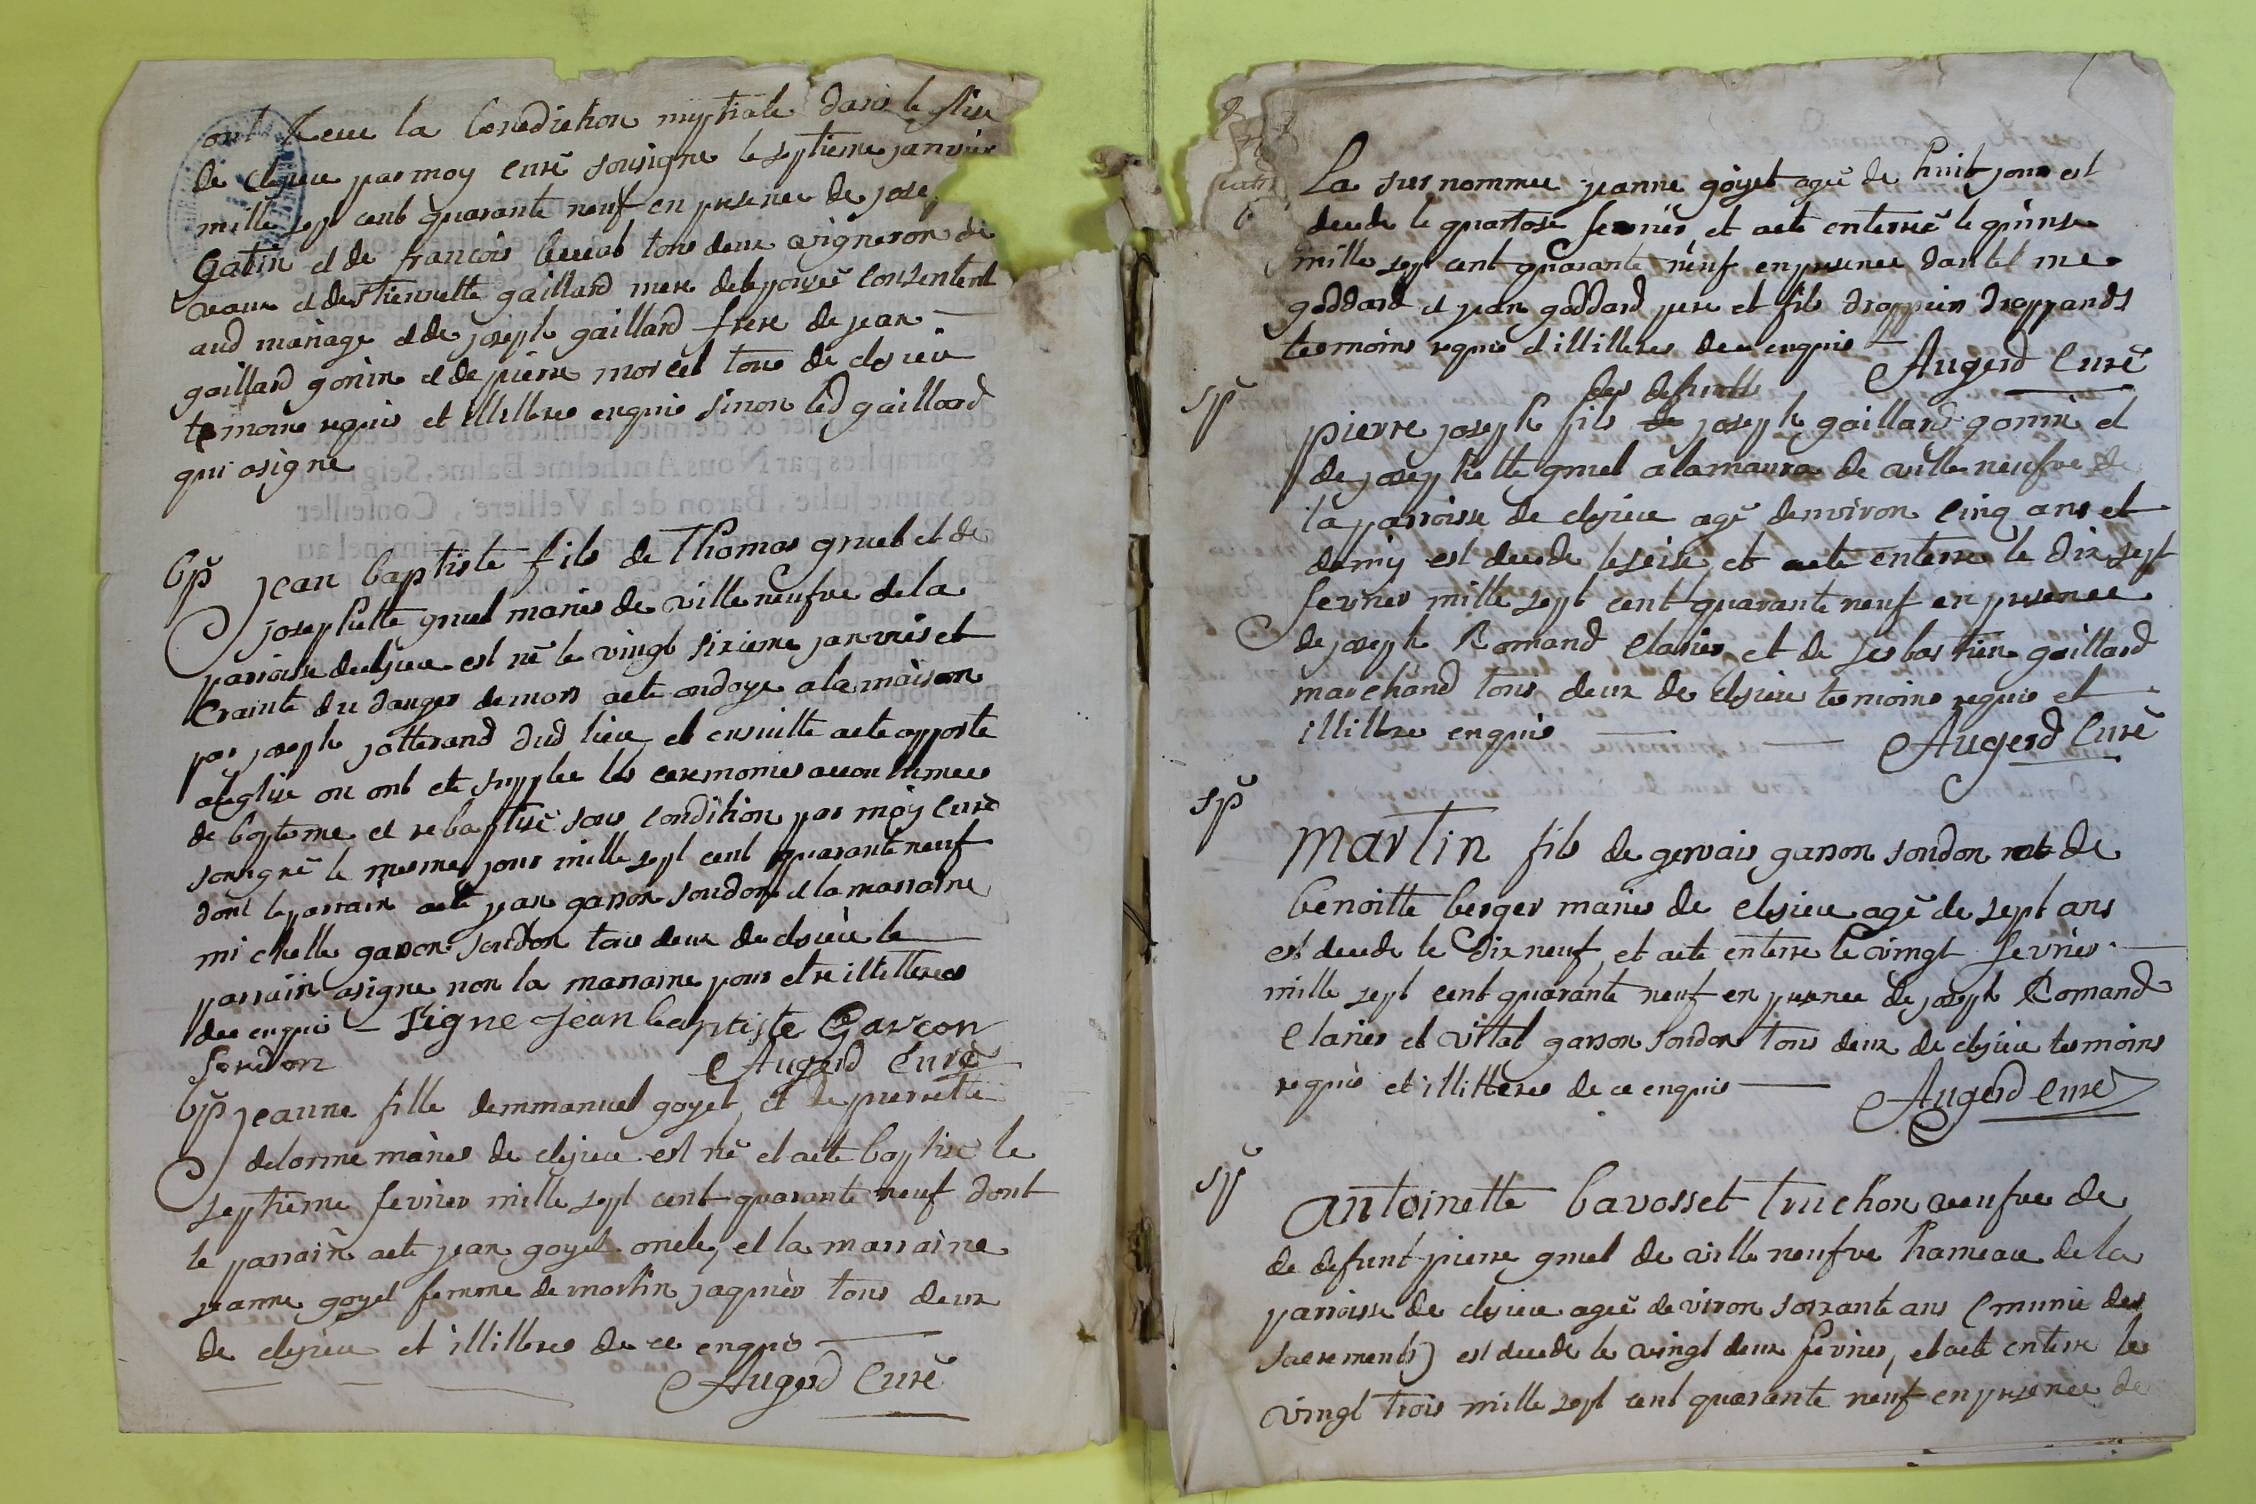 ont Receu la benediction nuptiale dans leglise
de clesieu par moy curé sousigné le septieme janvier
mille sept cent quarante neuf en presence de jose
Gatin et de francois tous deux vigneron de
vaux et destiennette gaillard mere delepousée consentent
aud mariage et de joseph gaillard frere de jean
gaillard gonin et de pierre morcel tous de clesieu
temoins requis et illitres enquis sinon led gaillard
qui asigné
bp
jean baptiste fils de Thomas gruel et de
josephette gruel mariés de villeneufve de la
parroisse de clesieu est né le vingt sixieme janvier et
crainte du danger de mort aeté ondoyé a la maison
par joseph jotterand dud lieu et ensuitte aeté apporté
aleglise ou ont eté supplée les ceremonies accoutumees
de bapteme et rebaptisé sous condition par moy curé
sousigné le meme jour mille sept cent quarante neuf
dont le parrain aeté jean garson soudon et la marraine
michelle garson soudon tous deux de clesieu le
parrain asigné non la marraine pour etre illitteres
de ce enquis — signe jean baptiste Garcon
soudon Augerd Curé
bp
jeanne fille demmanuel goyet et de pierrette
delorme mariés de clesieu est né et aeté baptisé le
septieme fevrier mille sept cent quarante neuf dont
le parrain aeté jean goyet oncle, et la marraine
jeanne goyet femme de martin jaquier tous deux
de clesieu et illitres de ce enquis
Augerd Curé
La surnommee jeanne goyet agée de huit jours est
decede le quartose fevrier et aeté enterré le quinse
mille sept cent quarante neuf en presence dantelme
goddard et jean goddard pere et fils drappier
temoins requis et illitteres de ce enquis
Augerd Curé
sp
des defunts
pierre joseph fils joseph gaillard gonin et
de josephette gruel alamaura de villeneufve de
la parroisse de clesieu agé denviron cinq ans et
demy est decede le seise et aeté enterré le dix sept
fevrier mille sept cent quarante neuf en presence
de joseph Romand clavier et de sesbastien gaillard
marchand tous deux de clesieu temoins requis et
illitres enquis Augerd Curé
sp
martin fils de gervais garson soudon et de
benoitte berger mariés de clesieu agé de sept ans
est decedé le dix neuf et aeté enterré le vingt fevrier
mille sept cent quarante neuf en presence de joseph Romand
clavier et vital garson soudon tous deux de clesieu temoins
requis et illitteres de ce enquis Augerd curé
sp
antoinette bavosset truchon veufve de
de defunt pierre gruel de villeneufve hameau de la
parroisse de clesieu agée de viron soixante ans (munie des
sacrements) est decedé le vingt deux fevrier, et aeté enterré le
vingt trois mille sept cent quarante neuf en presence de